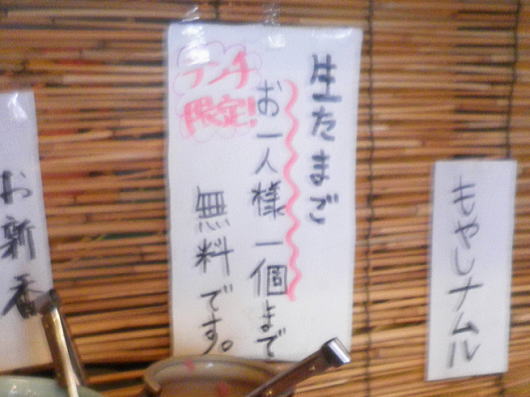 生たまご
お一人様一個まで
無料です。
ランチ
限定!
もやしナムル
お新香